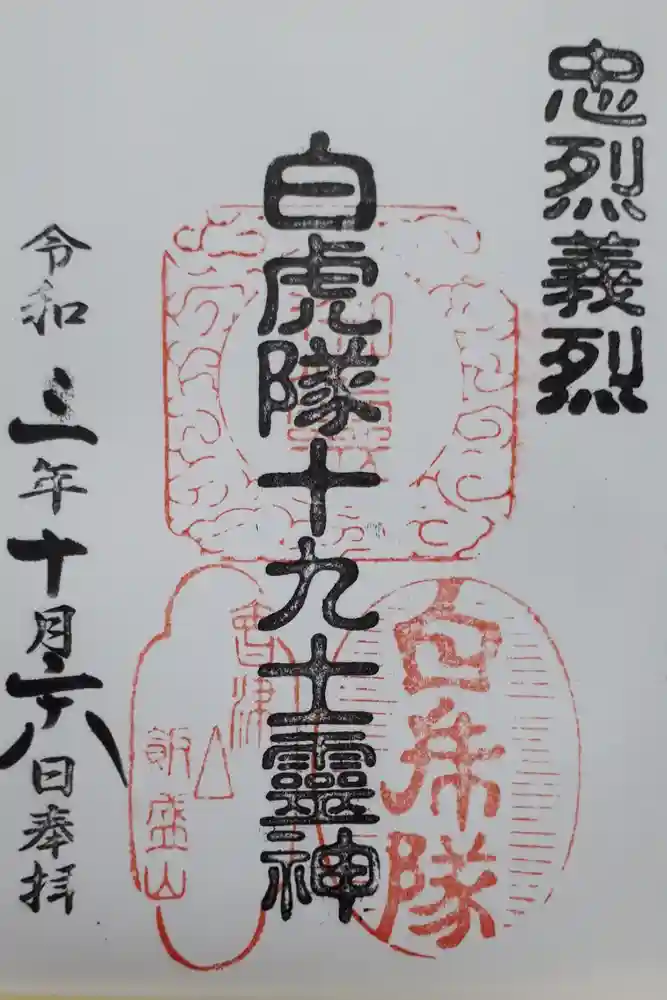 忠烈義烈
白虎隊十九士靈神
白虎隊
會津
飯盛山
令和三年十月二十八日奉拝